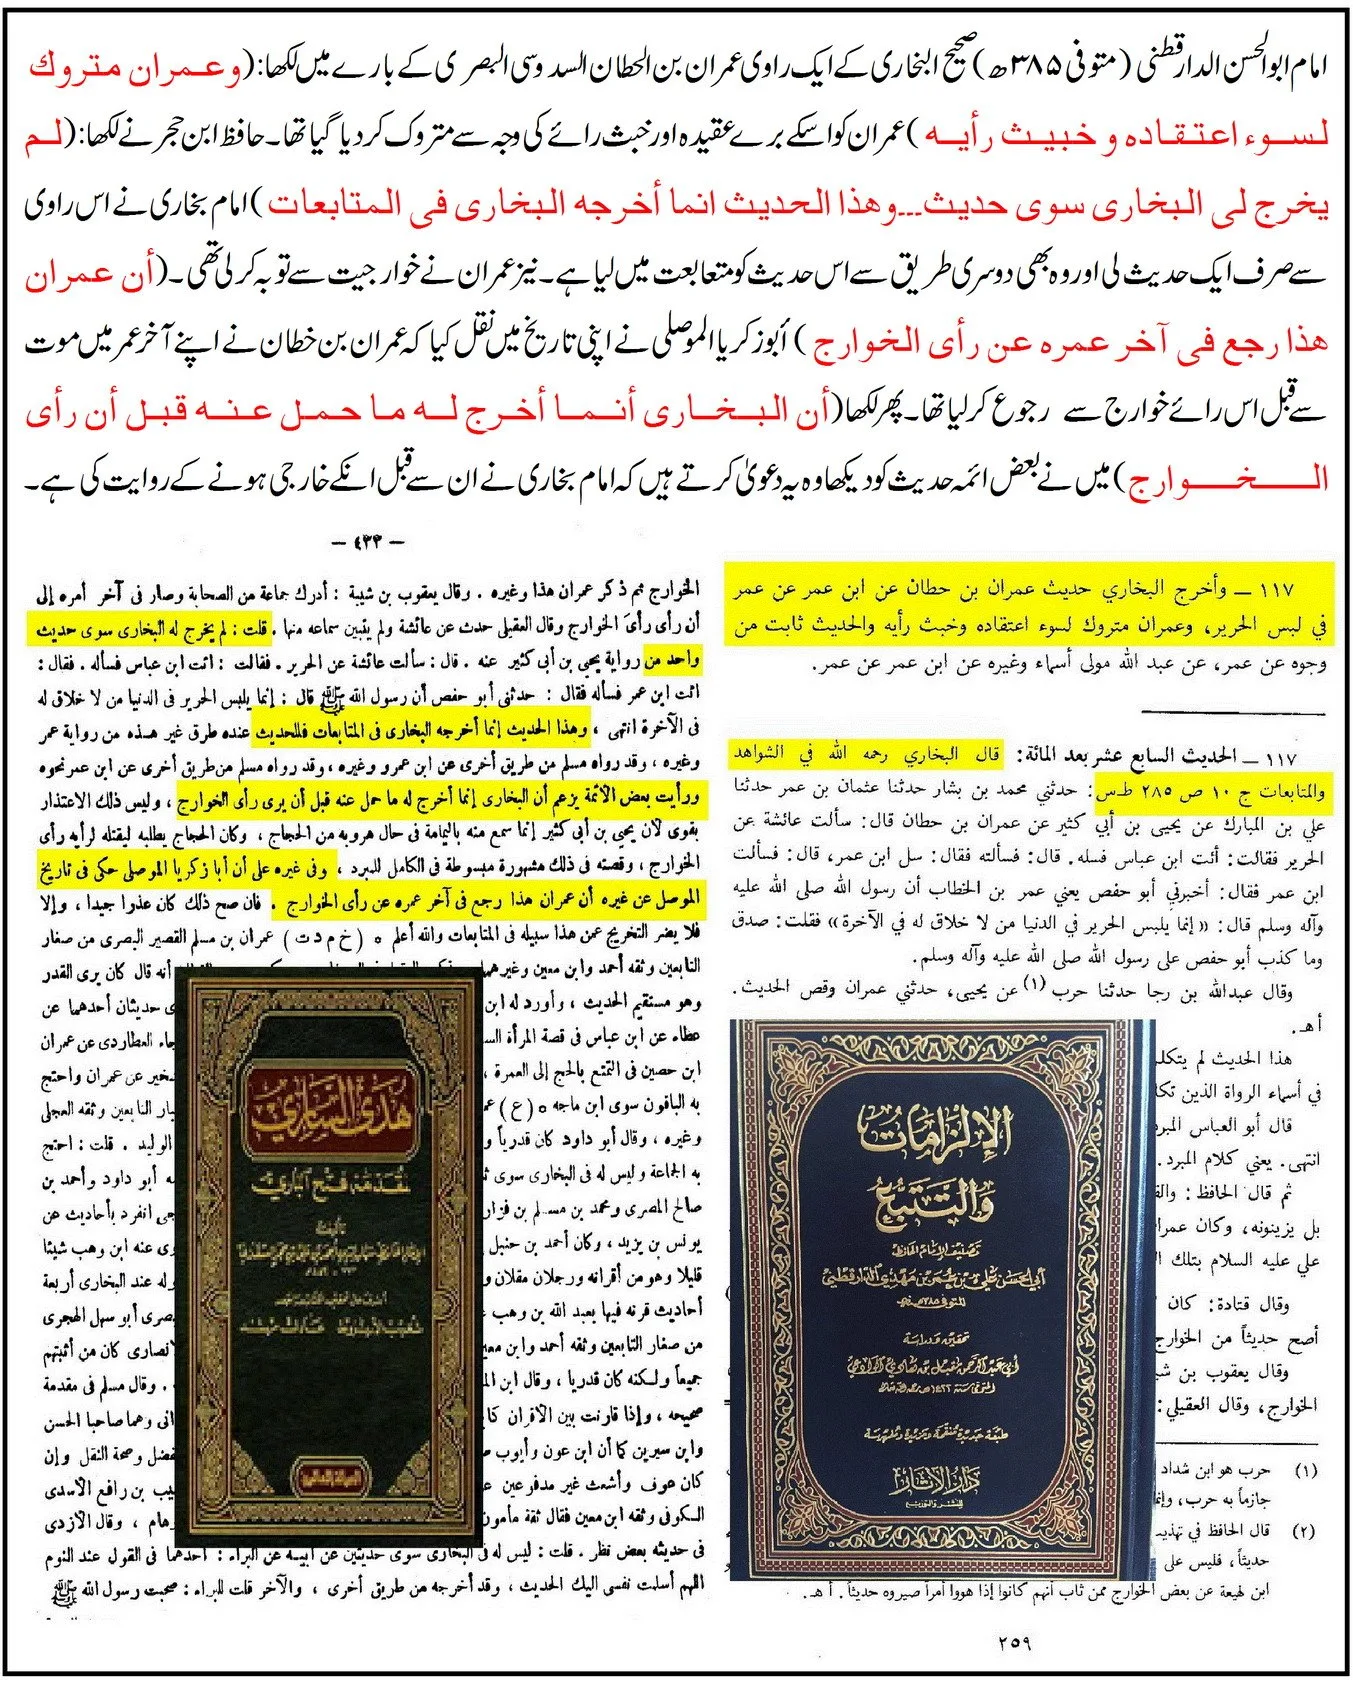 امام ابوالحسن الدار قطنی (متوفی ۳۸۵ھ) صحیح البخاری کے ایک راوی عمران بن الحطان السدوسی البصری کے بارے میں لکھا:(وعمران متروك
لسوء اعتقاده و خبيث رأيه )عمران کو اسکے برے عقیدہ اور خبث رائے کی وجہ سے متروک کر دیا گیا تھا۔حافظ ابن حجر نے لکھا:(لم
يخرج لى البخارى سوى حديث...وهذا الحديث انما أخرجه البخارى فى المتابعات)امام بخاری نے اس راوی
سے صرف ایک حدیث لی اور وہ بھی دوسری طریق سے اس حدیث کو متعابعت میں لیا ہے۔نیز عمران نے خوارجیت سے توبہ کر لی تھی۔(أن عمران
هذا رجع فى آخر عمره عن رأى الخوارج ) أبوزکریا الموصلی نے اپنی تاریخ میں نقل کیا کہ عمران بن خطان نے اپنے آخر عمر میں موت
سے قبل اس رائے خوارج سے رجوع کر لیا تھا۔پھر لکھا(أن البخارى أنما أخرج له ما حمل عنه قبل أن رأى
الخوارج)میں نے بعض ائمہ حدیث کو دیکھا وہ یہ دعویٰ کرتے ہیں کہ امام بخاری نے ان سے قبل انکے خارجی ہونے کے روایت کی ہے۔
١١٧ ــ وأخرج البخاري حديث عمران بن حطان عن ابن عمر عن عمر
في لبس الحرير، وعمران متروك لسوء اعتقاده وخبث رأيه والحديث ثابت من
وجوه عن عمر، عن عبد الله مولى أسماء وغيره عن ابن عمر عن عمر.
١١٧ ــ الحديث السابع عشر بعد المائة: قال البخاري رحمه الله في الشواهد
والمتابعات ج ١٠ ص ٢٨٥ ط س: حدثني محمد بن بشار حدثنا عثمان بن عمر حدثنا
علي بن المبارك عن يحيى بن أبي كثير عن عمران بن حطان قال: سألت عائشة عن
الحرير فقالت: أئت ابن عباس فسله. قال: فسألته فقال: سل ابن عمر، قال: فسألت
ابن عمر فقال: أخبرني أبو حفص يعني عمر بن الخطاب أن رسول الله صلى الله عليه
وآله وسلم قال: «إنما يلبس الحرير في الدنيا من لا خلاق له في الآخرة» فقلت: صدق
وما كذب أبو حفص على رسول الله صلى الله عليه وآله وسلم.
وقال عبدالله بن رجا حدثنا حرب (١) عن يحيى، حدثني عمران وقص الحديث.
أ هـ.
هذا الحديث لم يتكلـ
في أسماء الرواة الذين تكلـ
قال أبو العباس المبرد
انتهى. يعني كلام المبرد.
ثم قال الحافظ: والقـ
بل يزينونه، وكان عمرا
علي عليه السلام بتلك ا
وقال قتادة: كان
أصح حديثاً من الخوارج
وقال يعقوب بن شيـ
الخوارج، وقال العقيلي:
(١) حرب هو ابن شداد
جازماً به حرب، وإنما
(٢) قال الحافظ في تهذيـ
حديثاً، فليس على
ابن لهيعة عن بعض الخوارج ممن تاب أنهم كانوا إذا هووا أمراً صيروه حديثاً. أ هـ.
٢٥٩
الإلزامات
والتتبع
تصنيف الإمام الحافظ
أبي الحسن علي بن عمر بن مهدي الدارقطني
المتوفى ٣٨٥هـ
تحقيق ودراسة
أبي عبد الرحمن مقبل بن هادي الوادعي
طبعة جديدة منقحة ومزيدة ومفهرسة
دار الآثار
للنشر والتوزيع
— ٤٣٣ —
الخوارج ثم ذكر عمران هذا وغيره . وقال يعقوب بن شيبة : أدرك جماعة من الصحابة وصار فى آخر أمره إلى
أن رأى رأى الخوارج وقال العقيلى حدث عن عائشة ولم يتبين سماعه منها . قلت : لم يخرج له البخارى سوى حديث
واحد من رواية يحيى بن أبى كثير عنه . قال : سألت عائشة عن الحرير . فقالت : ائت ابن عباس فسأله . فقال :
ائت ابن عمر فسأله فقال : حدثنى أبو حفص أن رسول الله ﷺ قال : إنما يلبس الحرير فى الدنيا من لا خلاق له
فى الآخرة انتهى ، وهذا الحديث إنما أخرجه البخارى فى المتابعات فللحديث عنده طرق غير هذه من رواية عمر
وغيره ، وقد رواه مسلم من طريق أخرى عن ابن عمرو وغيره ، وقد رواه مسلم من طريق أخرى عن ابن عمر نحوه
ورأيت بعض الأئمة يزعم أن البخارى إنما أخرج له ما حمل عنه قبل أن يرى رأى الخوارج ، وليس ذلك الاعتذار
بقوى لأن يحيى بن أبى كثير إنما سمع منه باليمامة فى حال هروبه من الحجاج ، وكان الحجاج يطلبه ليقتله لرأيه رأى
الخوارج ، وقصته فى ذلك مشهورة مبسوطة فى الكامل للمبرد ، وفى غيره على أن أبا زكريا الموصلى حكى فى تاريخ
الموصل عن غيره أن عمران هذا رجع فى آخر عمره عن رأى الخوارج . فان صح ذلك كان عذرا جيدا ، وإلا
فلا يضر التخريج عمن هذا سبيله فى المتابعات والله أعلم ه ( خ م د ت ) عمران بن مسلم القصير البصرى من صغار
التابعين وثقه أحمد وابن معين وغيرهما أنه قال كان يرى القدر
وهو مستقيم الحديث ، وأورد له ابن ى حديثان أحدهما عن
عطاء عن ابن عباس فى قصة المرأة السـ جاء العطاردى عن عمران
ابن حصين فى التمتع بالحج إلى العمرة ، ـخير عن عمران واحتج
به الباقون سوى ابن ماجه ه ( ع ) عمـ ـار التابعين وثقه العجلى
وغيره ، وقال أبو داود كان قدرياً و الوليد . قلت : احتج
به الجماعة وليس له فى البخارى سوى ـه أبو داود وأحمد بن
صالح المصرى ومحمد بن مسلم بن فزار جى انفرد بأحاديث عن
يونس بن يزيد ، وكان أحمد بن حنبل رى عنه ابن وهب شيئا
قليلا وهو من أقرانه ورجلان مقلان و وله عند البخارى أربعة
أحاديث قرنه فيها بعبد الله بن وهب ـصرى أبو سهل الهجرى
من صغار التابعين وثقه أحمد وابن معين لانصارى كان من أثبتهم
جميعاً ولكنه كان قدريا ، وقال ابن المـ . وقال مسلم فى مقدمة
صحيحه ، وإذا قارنت بين الأقران كا ـانى وهما صاحبا الحسن
وابن سيرين كما أن ابن عون وأيوب ـفضل وصحة النقل وإن
كان عوف وأشعث غير مدفوعين عـ ـيب بن رافع الأسدى
الكوفى وثقه ابن معين فقال ثقة مأمون ـوهام ، وقال الأزدى
فى حديثه بعض نظر . قلت : ليس له فى البخارى سوى حديثين عن أبيه عن البراء : أحدهما فى القول عند النوم
اللهم أسلمت نفسى اليك الحديث ، وقد أخرجه من طريق أخرى ، والآخر قلت للبراء : صحبت رسول الله ﷺ
هدى الساري
مقدمة فتح الباري